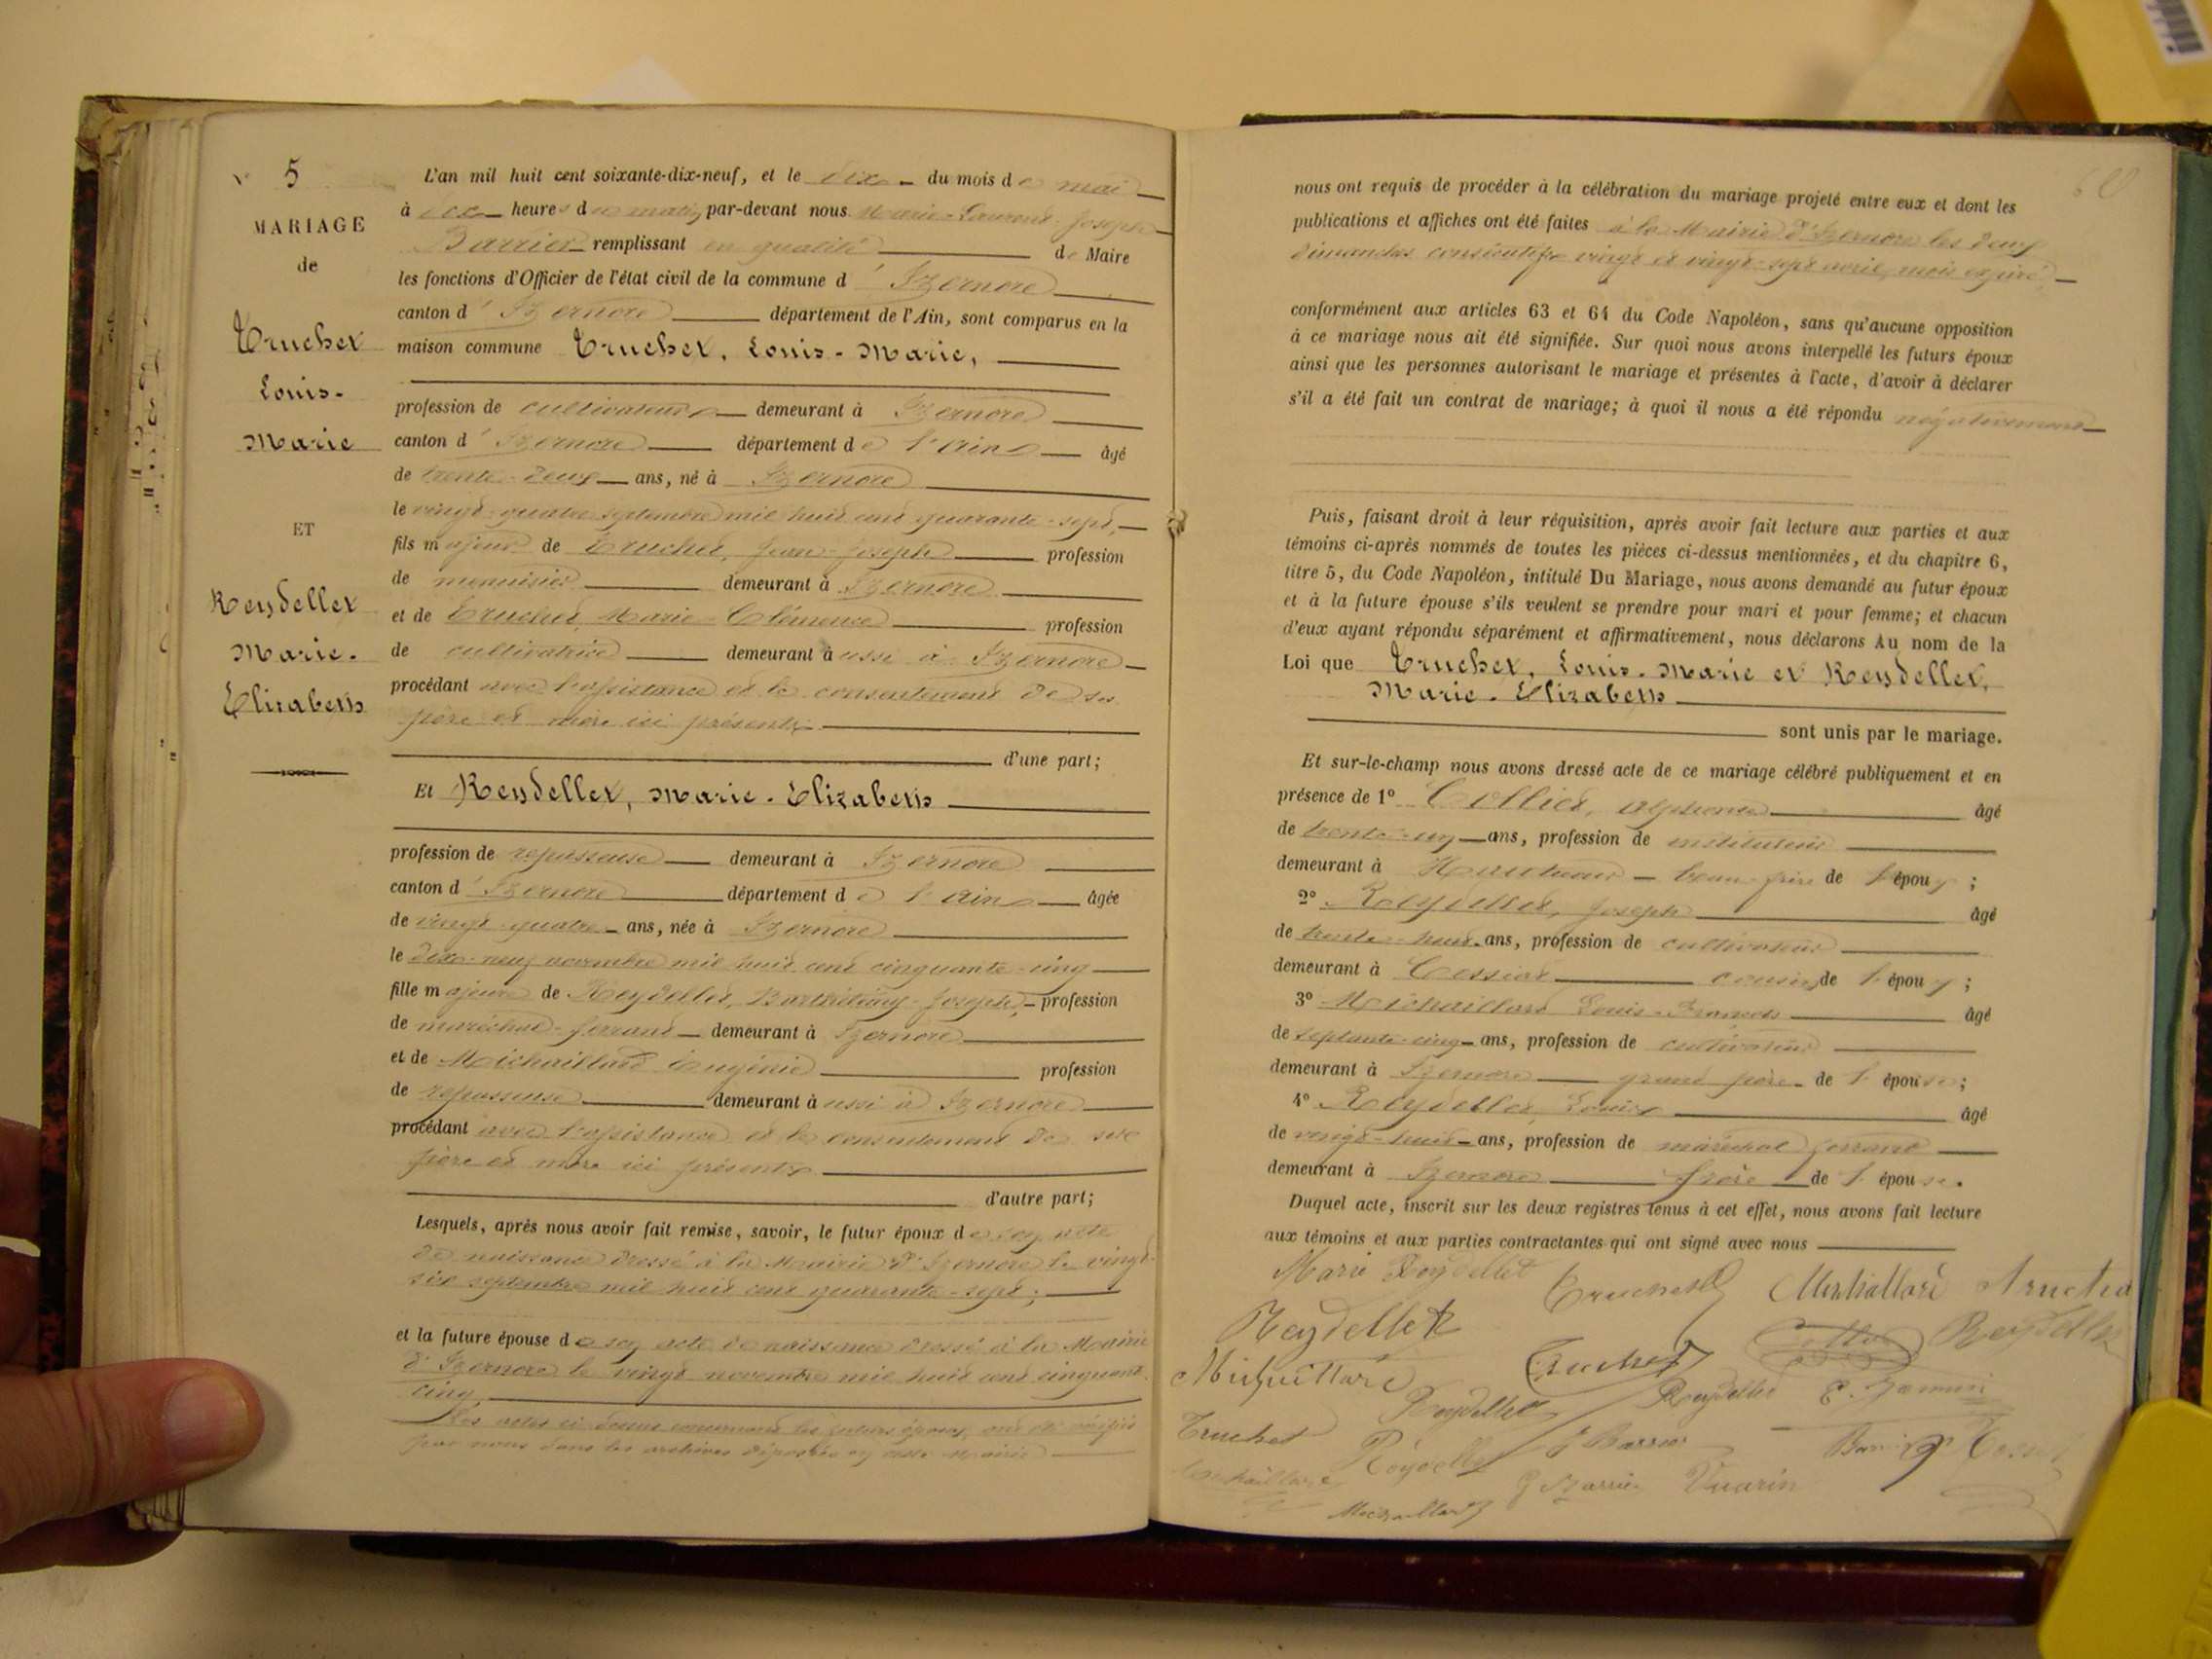 5
MARIAGE
de
Truchet
Louis-
Marie
ET
Reydellet
Marie-
Elizabeth
L'an mil huit cent soixante-dix-neuf, et le dix du mois de mai
à dix heures du matin, par-devant nous Marie-Laurent-Joseph
Barrier remplissant en qualité de Maire
les fonctions d'Officier de l'état civil de la commune d'Izernore
canton d'Izernore département de l'Ain, sont comparus en la
maison commune Truchet, Louis-Marie,
profession de cultivateur demeurant à Izernore
canton d'Izernore département de l'Ain âgé
de trente-deux ans, né à Izernore
le vingt-quatre septembre mil huit cent quarante-sept,
fils majeur de Truchet, Jean-Joseph profession
de menuisier demeurant à Izernore
et de Truchet, Marie-Clémence profession
de cultivatrice demeurant aussi à Izernore
procédant avec l'assistance et le consentement de ses
père et mère ici présents
d'une part;
Et Reydellet, Marie-Elizabeth
profession de repasseuse demeurant à Izernore
canton d'Izernore département de l'Ain âgée
de vingt-quatre ans, née à Izernore
le dix-neuf novembre mil huit cent cinquante-cinq
fille majeure de Reydellet, Barthélemy-Joseph, profession
de maréchal-ferrant demeurant à Izernore
et de Michaillard Eugénie profession
de repasseuse demeurant aussi à Izernore
procédant avec l'assistance et le consentement de ses
père et mère ici présents
d'autre part;
Lesquels, après nous avoir fait remise, savoir, le futur époux de son acte
de naissance dressé à la Mairie d'Izernore le vingt-
six septembre mil huit cent quarante-sept;
et la future épouse de son acte de naissance dressé à la Mairie
d'Izernore le vingt novembre mil huit cent cinquante
cinq
Les actes ci-dessus concernant les futurs époux, ont été vérifiés
par nous dans les archives déposées en cette Mairie
nous ont requis de procéder à la célébration du mariage projeté entre eux et dont les
publications et affiches ont été faites à la Mairie d'Izernore les deux
dimanches consécutifs vingt et vingt-sept avril, mois expiré,
conformément aux articles 63 et 64 du Code Napoléon, sans qu'aucune opposition
à ce mariage nous ait été signifiée. Sur quoi nous avons interpellé les futurs époux
ainsi que les personnes autorisant le mariage et présentes à l'acte, d'avoir à déclarer
s'il a été fait un contrat de mariage; à quoi il nous a été répondu négativement
Puis, faisant droit à leur réquisition, après avoir fait lecture aux parties et aux
témoins ci-après nommés de toutes les pièces ci-dessus mentionnées, et du chapitre 6,
titre 5, du Code Napoléon, intitulé Du Mariage, nous avons demandé au futur époux
et à la future épouse s'ils veulent se prendre pour mari et pour femme; et chacun
d'eux ayant répondu séparément et affirmativement, nous déclarons Au nom de la
Loi que Truchet, Louis-Marie et Reydellet,
Marie-Elizabeth
sont unis par le mariage.
Et sur-le-champ nous avons dressé acte de ce mariage célébré publiquement et en
présence de 1° Collier, Alphonse âgé
de trente-un ans, profession de instituteur
demeurant à beau-frère de l'époux;
2° Reydellet, Joseph âgé
de trente-huit ans, profession de cultivateur
demeurant à Cessiat cousin de l'époux;
3° Michaillard Louis-François âgé
de septante-cinq ans, profession de cultivateur
demeurant à Izernore grand père de l'épouse;
4° Reydellet, Louis âgé
de vingt-huit ans, profession de maréchal ferrant
demeurant à Izernore frère de l'épouse.
Duquel acte, inscrit sur les deux registres tenus à cet effet, nous avons fait lecture
aux témoins et aux parties contractantes qui ont signé avec nous
Marie Reydellet Truchet Michaillard Truchet
Reydellet Reydellet
Michaillard Truchet
Reydellet Reydellet
Truchet Reydellet Barrier
Michaillard Barrier Vuarin
Michaillard